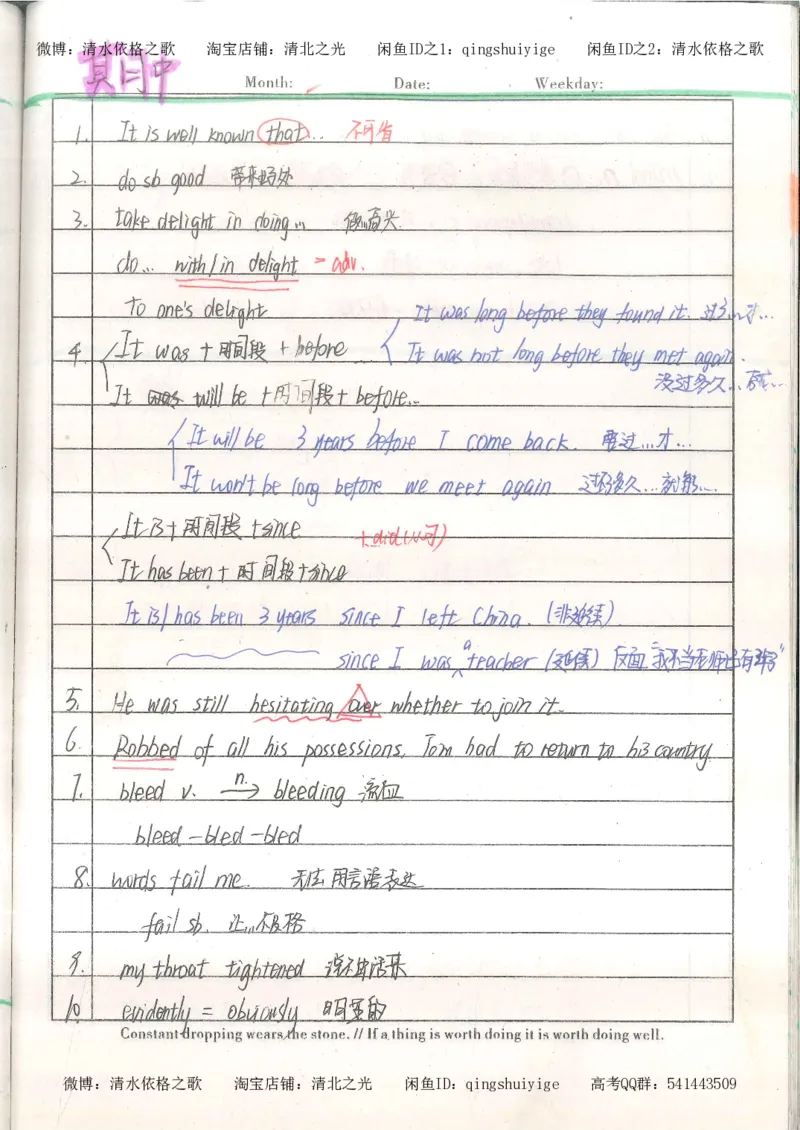 微博：清水依格之歌 淘宝店铺：清北之光 闲鱼ID之1：qingshuiyige 闲鱼ID之2：清水依格之歌
期中
Month: Date: Weekday:
1. It is well known that... 不可省
2. do sb good 带来好处
3. take delight in doing... 做...高兴.
do... with/in delight = adv.
To one's delight
It was long before they found it. 过了...才...
4. It was + 时间段 + before
It was not long before they met again.
没过多久...就...
It will be + 时间段 + before...
It will be 3 years before I come back. 要过...才...
It won't be long before we meet again 过不了多久...就能...
It is + 时间段 + since
+ did (v.可)
It has been + 时间段 + since
It is/has been 3 years since I left China. (非延续)
since I was a teacher (延续) 反面"我不当老师已有3年"
5. He was still hesitating over whether to join it.
6. Robbed of all his possessions, Tom had to return to his country.
7. bleed v. n. → bleeding 流血
bleed - bled - bled
8. words fail me. 无法用言语表达
fail sb. 让...不及格
9. my throat tightened 说不出话来
10. evidently = obviously 明显的
Constant dropping wears the stone. // If a thing is worth doing it is worth doing well.
微博：清水依格之歌 淘宝店铺：清北之光 闲鱼ID：qingshuiyige 高考QQ群：541443509